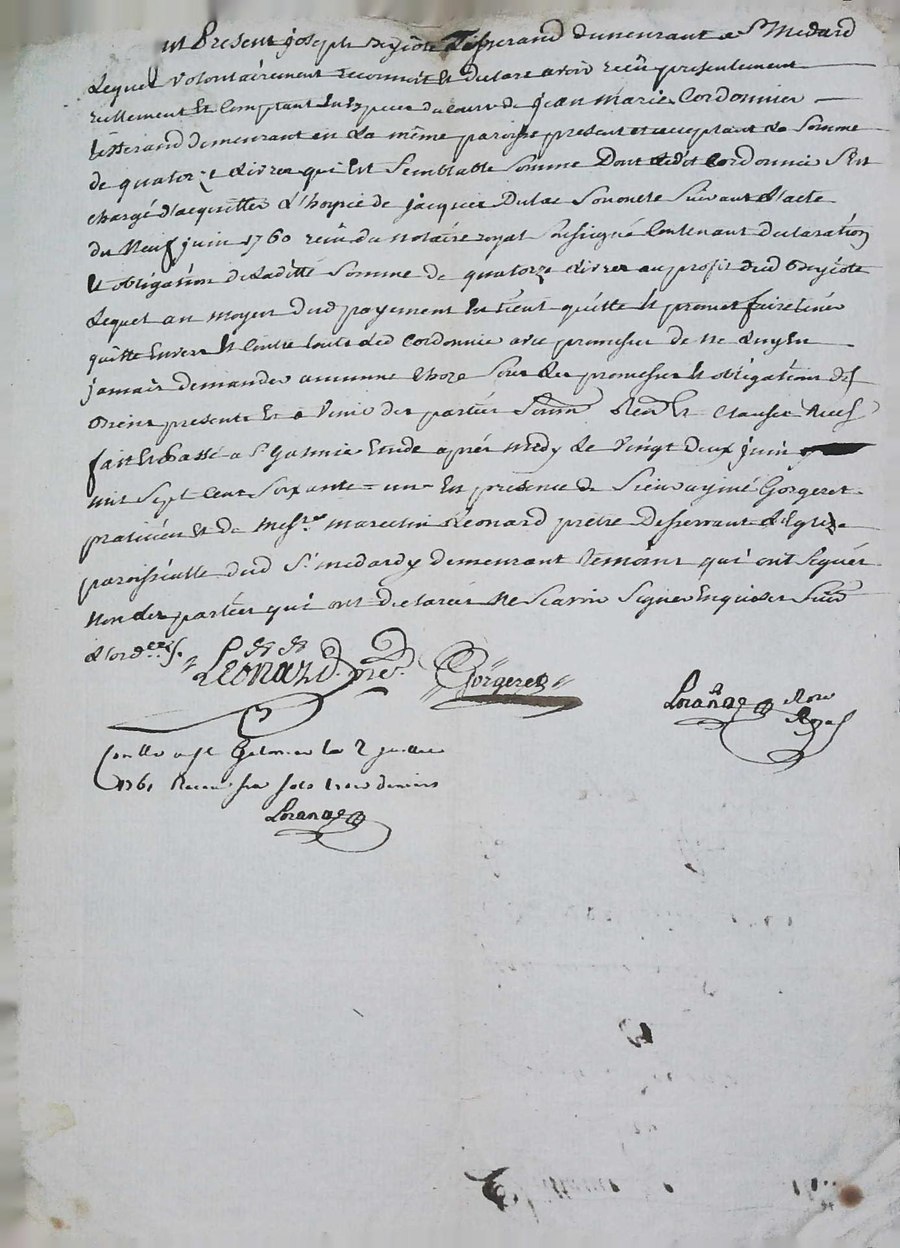 fut Present joseph Tisserand demeurant a St Medard
Lequel volontairement reconnoit et declare avoir reçû presentement
reellement et comptant en especes du cours de jean marie Cordonnier
tisserand demeurant en La même paroisse present et acceptant La Somme
de quatorze Livres qui Est Semblable Somme Dont Ledit Cordonnier s'Est
chargé d'acquitter de jacques Dulac Suivant L'acte
du Neuf juin 1760 reçû du Notaire royal Soussigné Contenant declaration
et obligation de Laditte Somme de quatorze Livres au profit dud
Lequel au moyen dud payement En tient quitte et promet faire tenir
quitte Envers et Contre touts Led Cordonnier avec promesse de ne Luy En
jamais demander aucunne Choze Sous Les promesses et obligations des
biens presents et a Venir des parties Soum Ren et clauses
fait et Passé a St Galmier Etude aprés midy Le Vingt Deux juin
mil Sept Cent Soixante = un En presence de Sieur aymé Gorgeret
praticien et de Messre marcelin Léonard prêtre Desservant L'Eglize
paroissialle dud St medard y demeurant temoins qui ont Signés
Non Les parties qui ont declarées Ne Scavoir Signer Enquises Suiv
L'ordce
Leonard pre Gorgeret
Nore
Royal
Conllé a St Galmier le 2
1761 Reçu six sols trois deniers